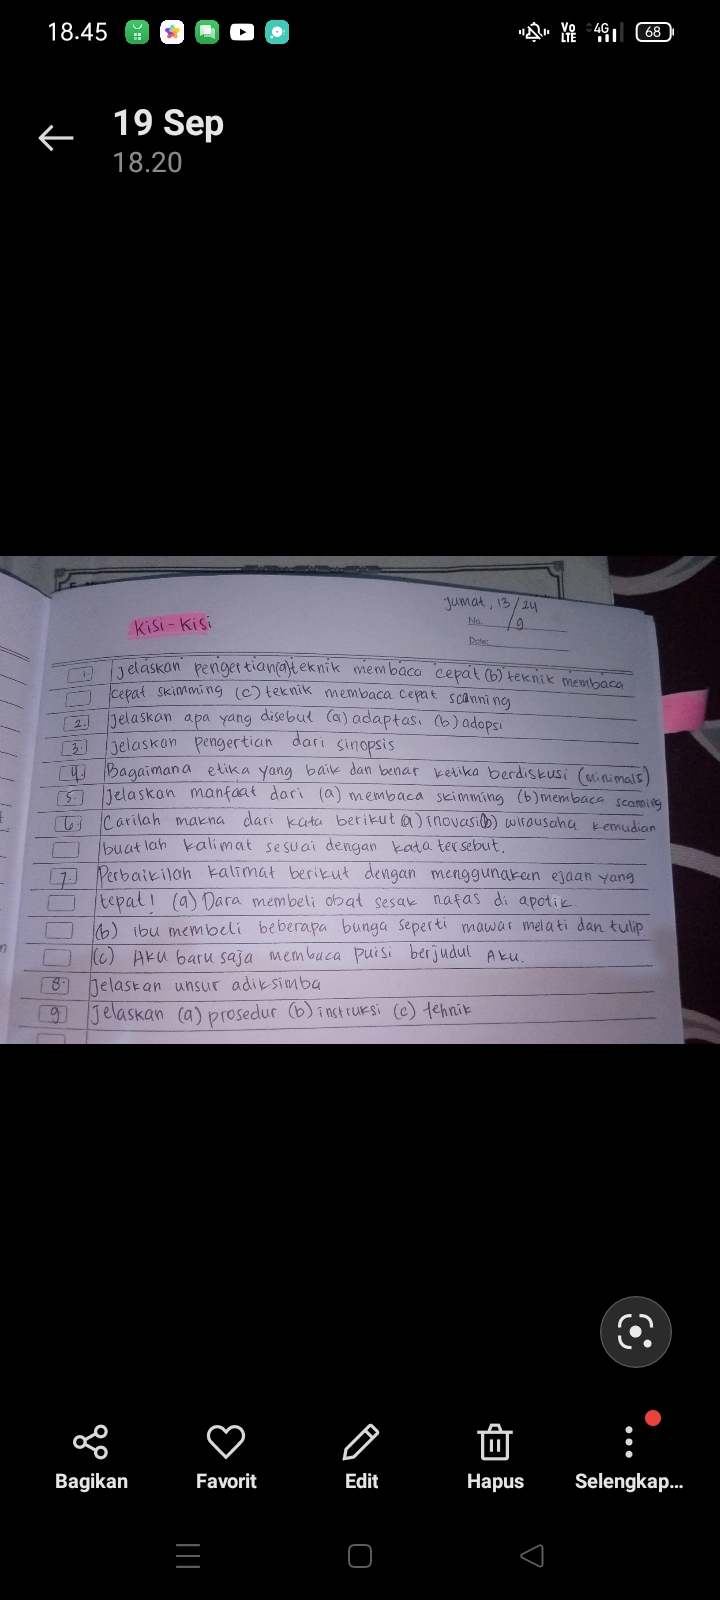 18.45
VO LTE 4G 68
19 Sep
18.20
Jumat, 13/24
No. /9
Date:
Kisi-Kisi
1. Jelaskan pengertian (a) teknik membaca cepat (b) teknik membaca
cepat skimming (c) teknik membaca cepat scanning
2. Jelaskan apa yang disebut (a) adaptasi (b) adopsi
3. Jelaskan pengertian dari sinopsis
4. Bagaimana etika yang baik dan benar ketika berdiskusi (minimals)
5. Jelaskan manfaat dari (a) membaca skimming (b) membaca scanning
6. Carilah makna dari kata berikut (a) inovasi (b) wirausaha kemudian
buatlah kalimat sesuai dengan kata tersebut.
7. Perbaikilah kalimat berikut dengan menggunakan ejaan yang
tepat! (a) Dara membeli obat sesak nafas di apotik.
(b) ibu membeli beberapa bunga seperti mawar melati dan tulip
(c) Aku baru saja membaca puisi berjudul Aku.
8. Jelaskan unsur adiksimba
9 Jelaskan (a) prosedur (b) instruksi (c) tehnik
Bagikan Favorit Edit Hapus Selengkap...